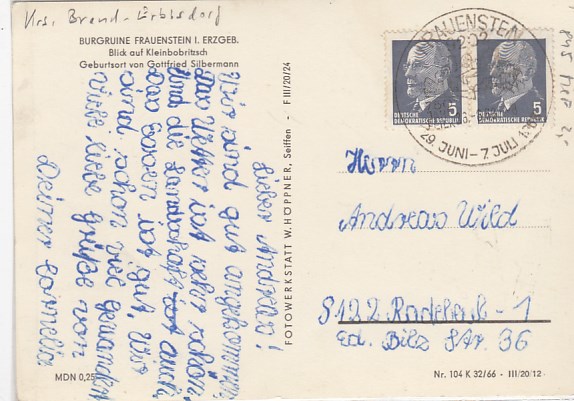 Krs. Brand-Erbisdorf
BURGRUINE FRAUENSTEIN I. ERZGEB.
Blick auf Kleinbobritzsch
Geburtsort von Gottfried Silbermann
Lieber Andreas!
Wir sind gut angekommen,
das Wetter ist sehr schön
und die Landschaft ist auch.
Das Essen ist gut. Wir
sind schon viel gewandert
Viele liebe Grüße von
Deiner Cornelia
MDN 0,25
FOTOWERKSTATT W. HÖPPNER, Seiffen - F III/20/24
FRAUENSTEIN
29. JUNI - 7. JULI
DEUTSCHE
DEMOKRATISCHE REPUBLIK
5
DEUTSCHE
DEMOKRATISCHE REPUBLIK
5
Herrn
Andreas Wild
8122 Radebeul - 1
Ed. Bilz Str. 36
Nr. 104 K 32/66 - III/20/12